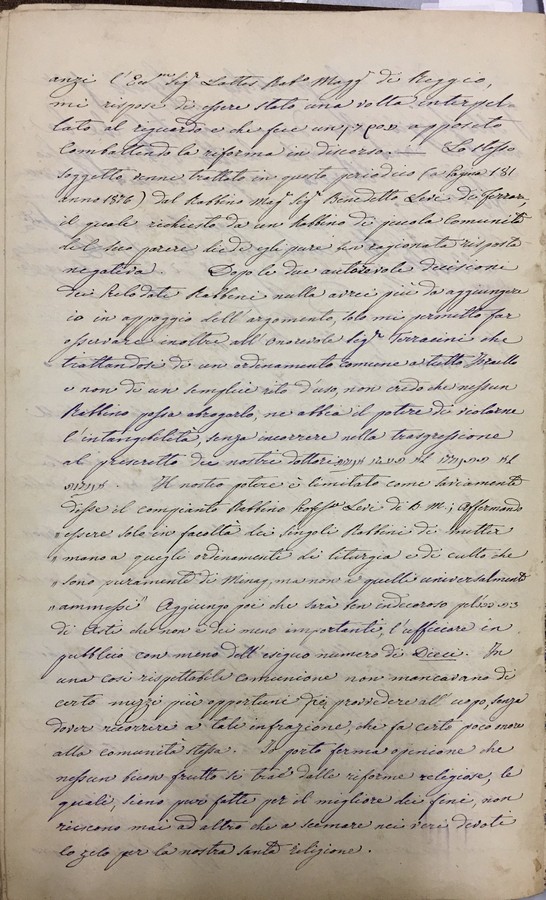 anzi l'Ecc.mo Sig.r Lattes Rab.o Magg.e di Reggio,
mi rispose di essere stato una volta interpel-
lato al riguardo e che fece un apposito
combattendo la riforma in discorso. — Lo stesso
soggetto venne trattato in questo periodico (a pagina 181
anno 1876) dal Rabbino Mag.e Sig.r Benedetto Levi di Ferrara,
il quale richiesto da un Rabbino di piccola Comunità
del suo parere diede egli pure una ragionata risposta
negativa. Dopo le due autorevole decisione
dei prelodati Rabbini nulla avrei più da aggiungere
io in appoggio dell'argomento, solo mi permetto far
osservare inoltre all'Onorevole Sig.r Terracini che
trattandosi di un ordinamento comune a tutto Israello
e non di un semplice rito d'uso, non credo che nessun
Rabbino possa abrogarlo, ne abbia il potere di violarne
l'intangibilità, senza incorrere nella trasgressione
al prescritto dei nostri dottori
Il nostro potere è limitato come saviamente
disse il compianto Rabbino Profess.re Levi di B. M.; Affermando
essere solo in facoltà dei singoli Rabbini di metter
" mano a quegli ordinamenti di liturgia e di culto che
" sono puramente di Minag, ma non a quelli universalmente
" ammessi" Aggiungo poi che sarà ben indecoroso pel
di Asti che non è dei meno importanti, l'ufficiare in
pubblico con meno dell'esiguo numero di Dieci. In
una così rispettabile comunione non mancavano di
certo mezzi più opportuni per provvedere all'uopo, senza
dover ricorrere a tale infrazione, che fa certo poco onore
alla comunità stessa. Io porto ferma opinione che
nessun buon frutto si trae dalle riforme religiose, le
quali, sieno pur fatte per il migliore dei fini, non
riescono mai ad altro che a scemare nei veri devoti
lo zelo per la nostra santa religione.